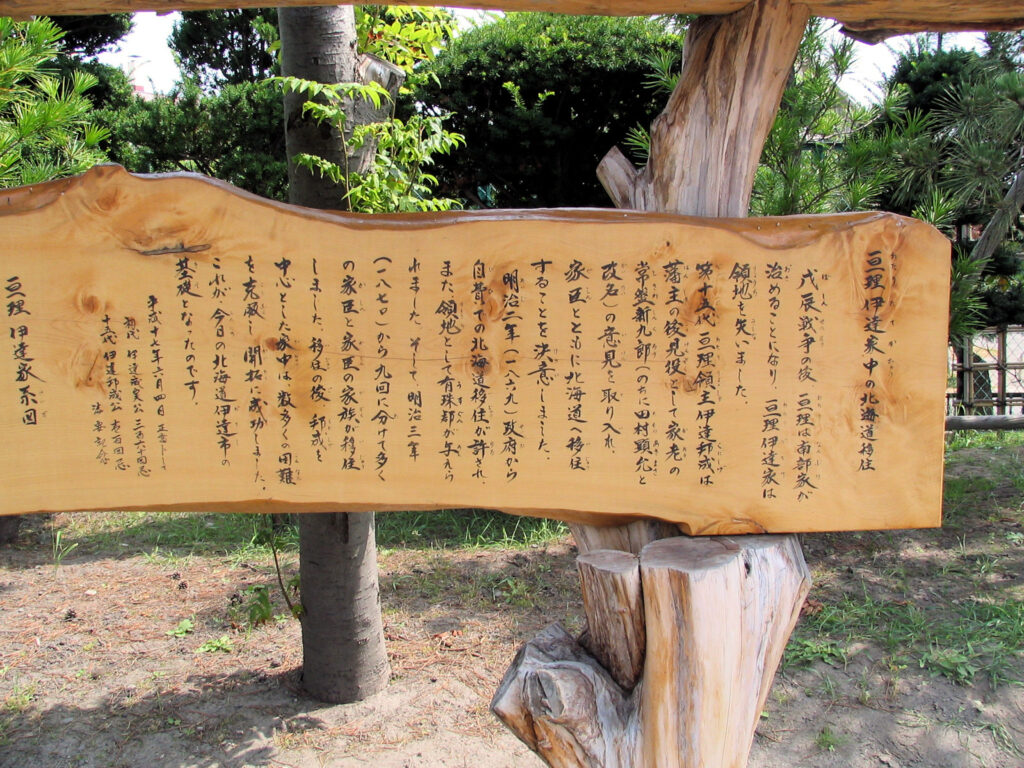 亘理伊達家中の北海道移住
戊辰戦争の後、亘理は南部家が
治めることになり、亘理伊達家は
領地を失いました。
第十五代亘理領主伊達邦成は
藩主の後見役として家老の
常盤新九郎(のちに田村顕允と
改名)の意見を取り入れ、
家臣とともに北海道へ移住
することを決意しました。
明治二年(一八六九)政府から
自費での北海道移住が許され、
また、領地として有珠郡が与えら
れました。そして、明治三年
(一八七〇)から九回に分けて多く
の家臣と家臣の家族が移住
しました。移住の後、邦成を
中心とした家中は、数多くの困難
を克服し、開拓に成功しました。
これが、今日の北海道伊達市の
基礎となったのです。
平成十七年六月四日
初代 伊達成実公 三百六十回忌
十五代 伊達邦成公 百回忌
亘理伊達家系図